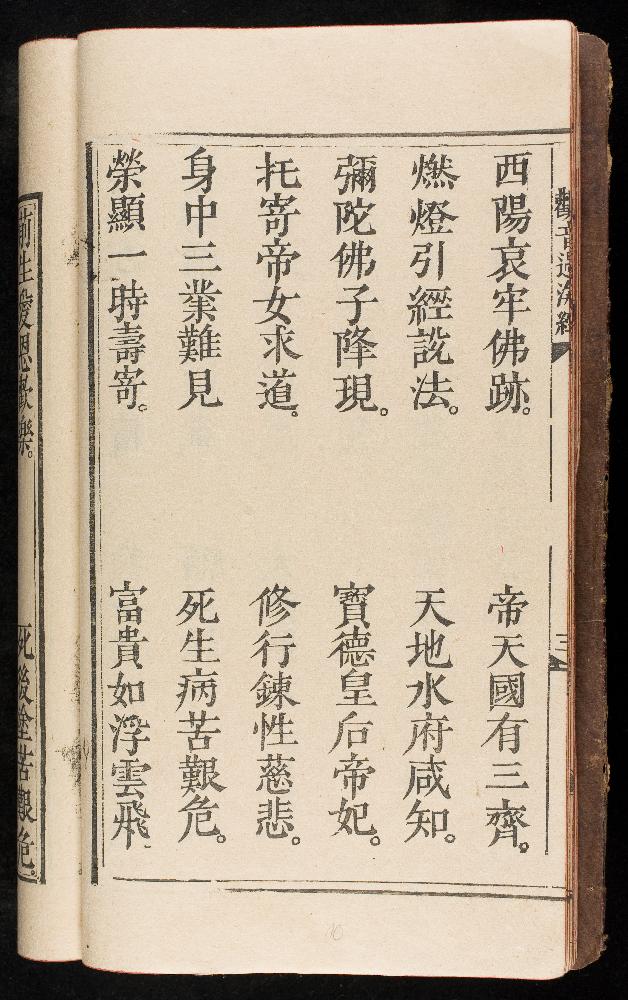 觀音過海經
三
西陽哀牢佛跡。 帝天國有三齊。
燃燈引經說法。 天地水府咸知。
彌陀佛子降現。 寶德皇后帝妃。
托寄帝女求道。 修行鍊性慈悲。
身中三業難見 死生病苦艱危。
榮顯一時壽寄。 富貴如浮雲飛
歡樂。 死後 苦艱危。